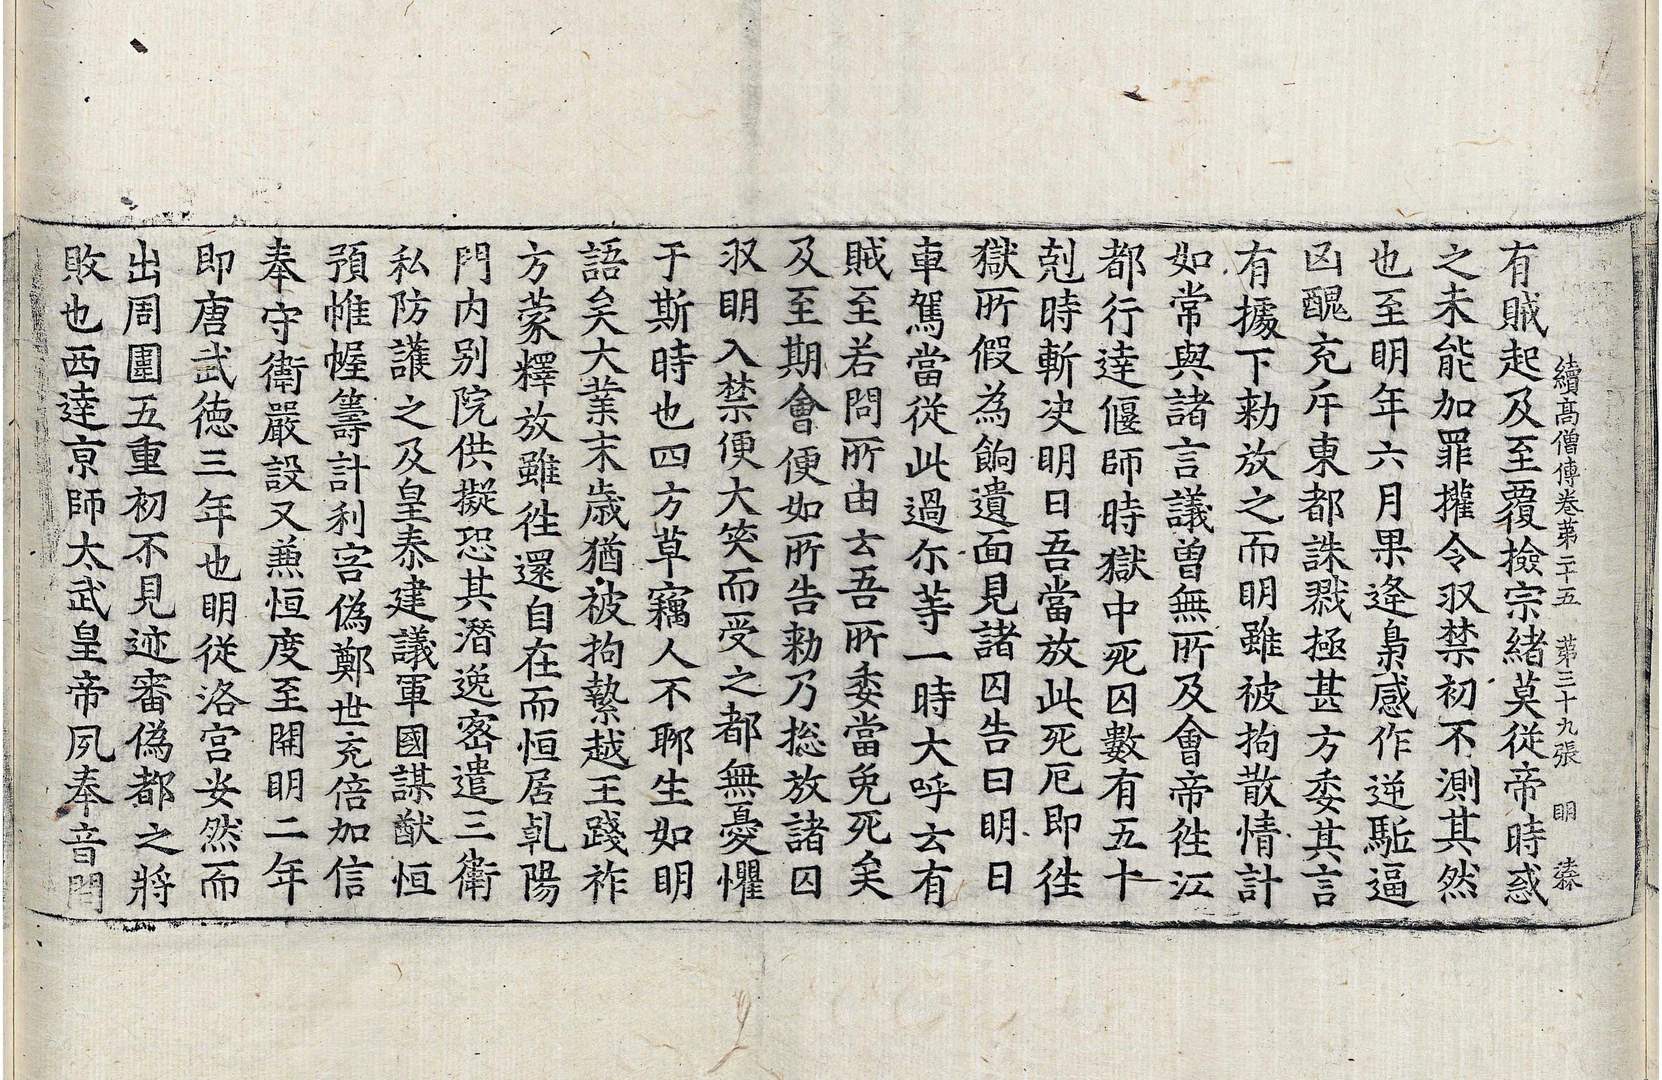 續高僧傳卷苐二十五　苐三十九張　明
有賊起及至覆撿宗緒莫從帝時惑
之未能加罪攉令収禁初不測其然
也至明年六月果逢梟感作逆駈逼
凶醜充斥東都誅戮極甚方委其言
有據下勑放之而明雖被拘散情計
如常與諸言議曽無所及會帝徃江
都行達偃師時獄中死囚數有五十
剋時斬决明日吾當放此死厄即徃
獄所假為餉遺面見諸囚告曰明日
車駕當從此過尓等一時大呼云有
賊至若問所由云吾所委當免死矣
及至期會便如所告勑乃捴放諸囚
収明入禁便大笑而受之都無憂懼
于斯時也四方草竊人不聊生如明
語矣大業末歳猶被拘縶越王踐祚
方蒙釋放雖徃還自在而恒居乹陽
門内别院供擬恐其潜逸密遣三衛
私防護之及皇泰建議軍國謀猷恒
預帷幄籌計利害偽鄭世充倍加信
奉守衛嚴設又兼恒度至開明二年
即唐武徳三年也明從洛宫安然而
出周圍五重初不見迹審偽都之將
敗也西達亰師太武皇帝夙奉音問